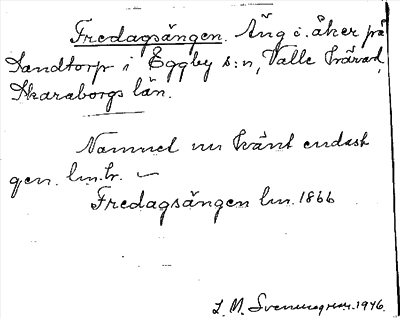 Fredagsängen. Äng i åker på
Sandtorp i Eggby s:n, Valle härad,
Skaraborgs län.
Namnet nu känt endast
gen. lm.tr. –
Fredagsängen lm. 1866
L. M. Svennungsson. 1946.